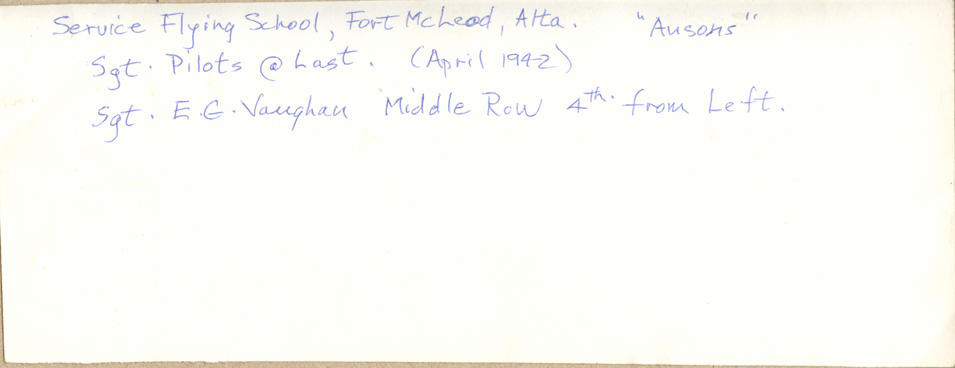 Service Flying School, Fort McLeod, Alta. "Ansons"
Sgt. Pilots @ Last. (April 1942)
Sgt. E.G. Vaughan Middle Row 4th. from Left.